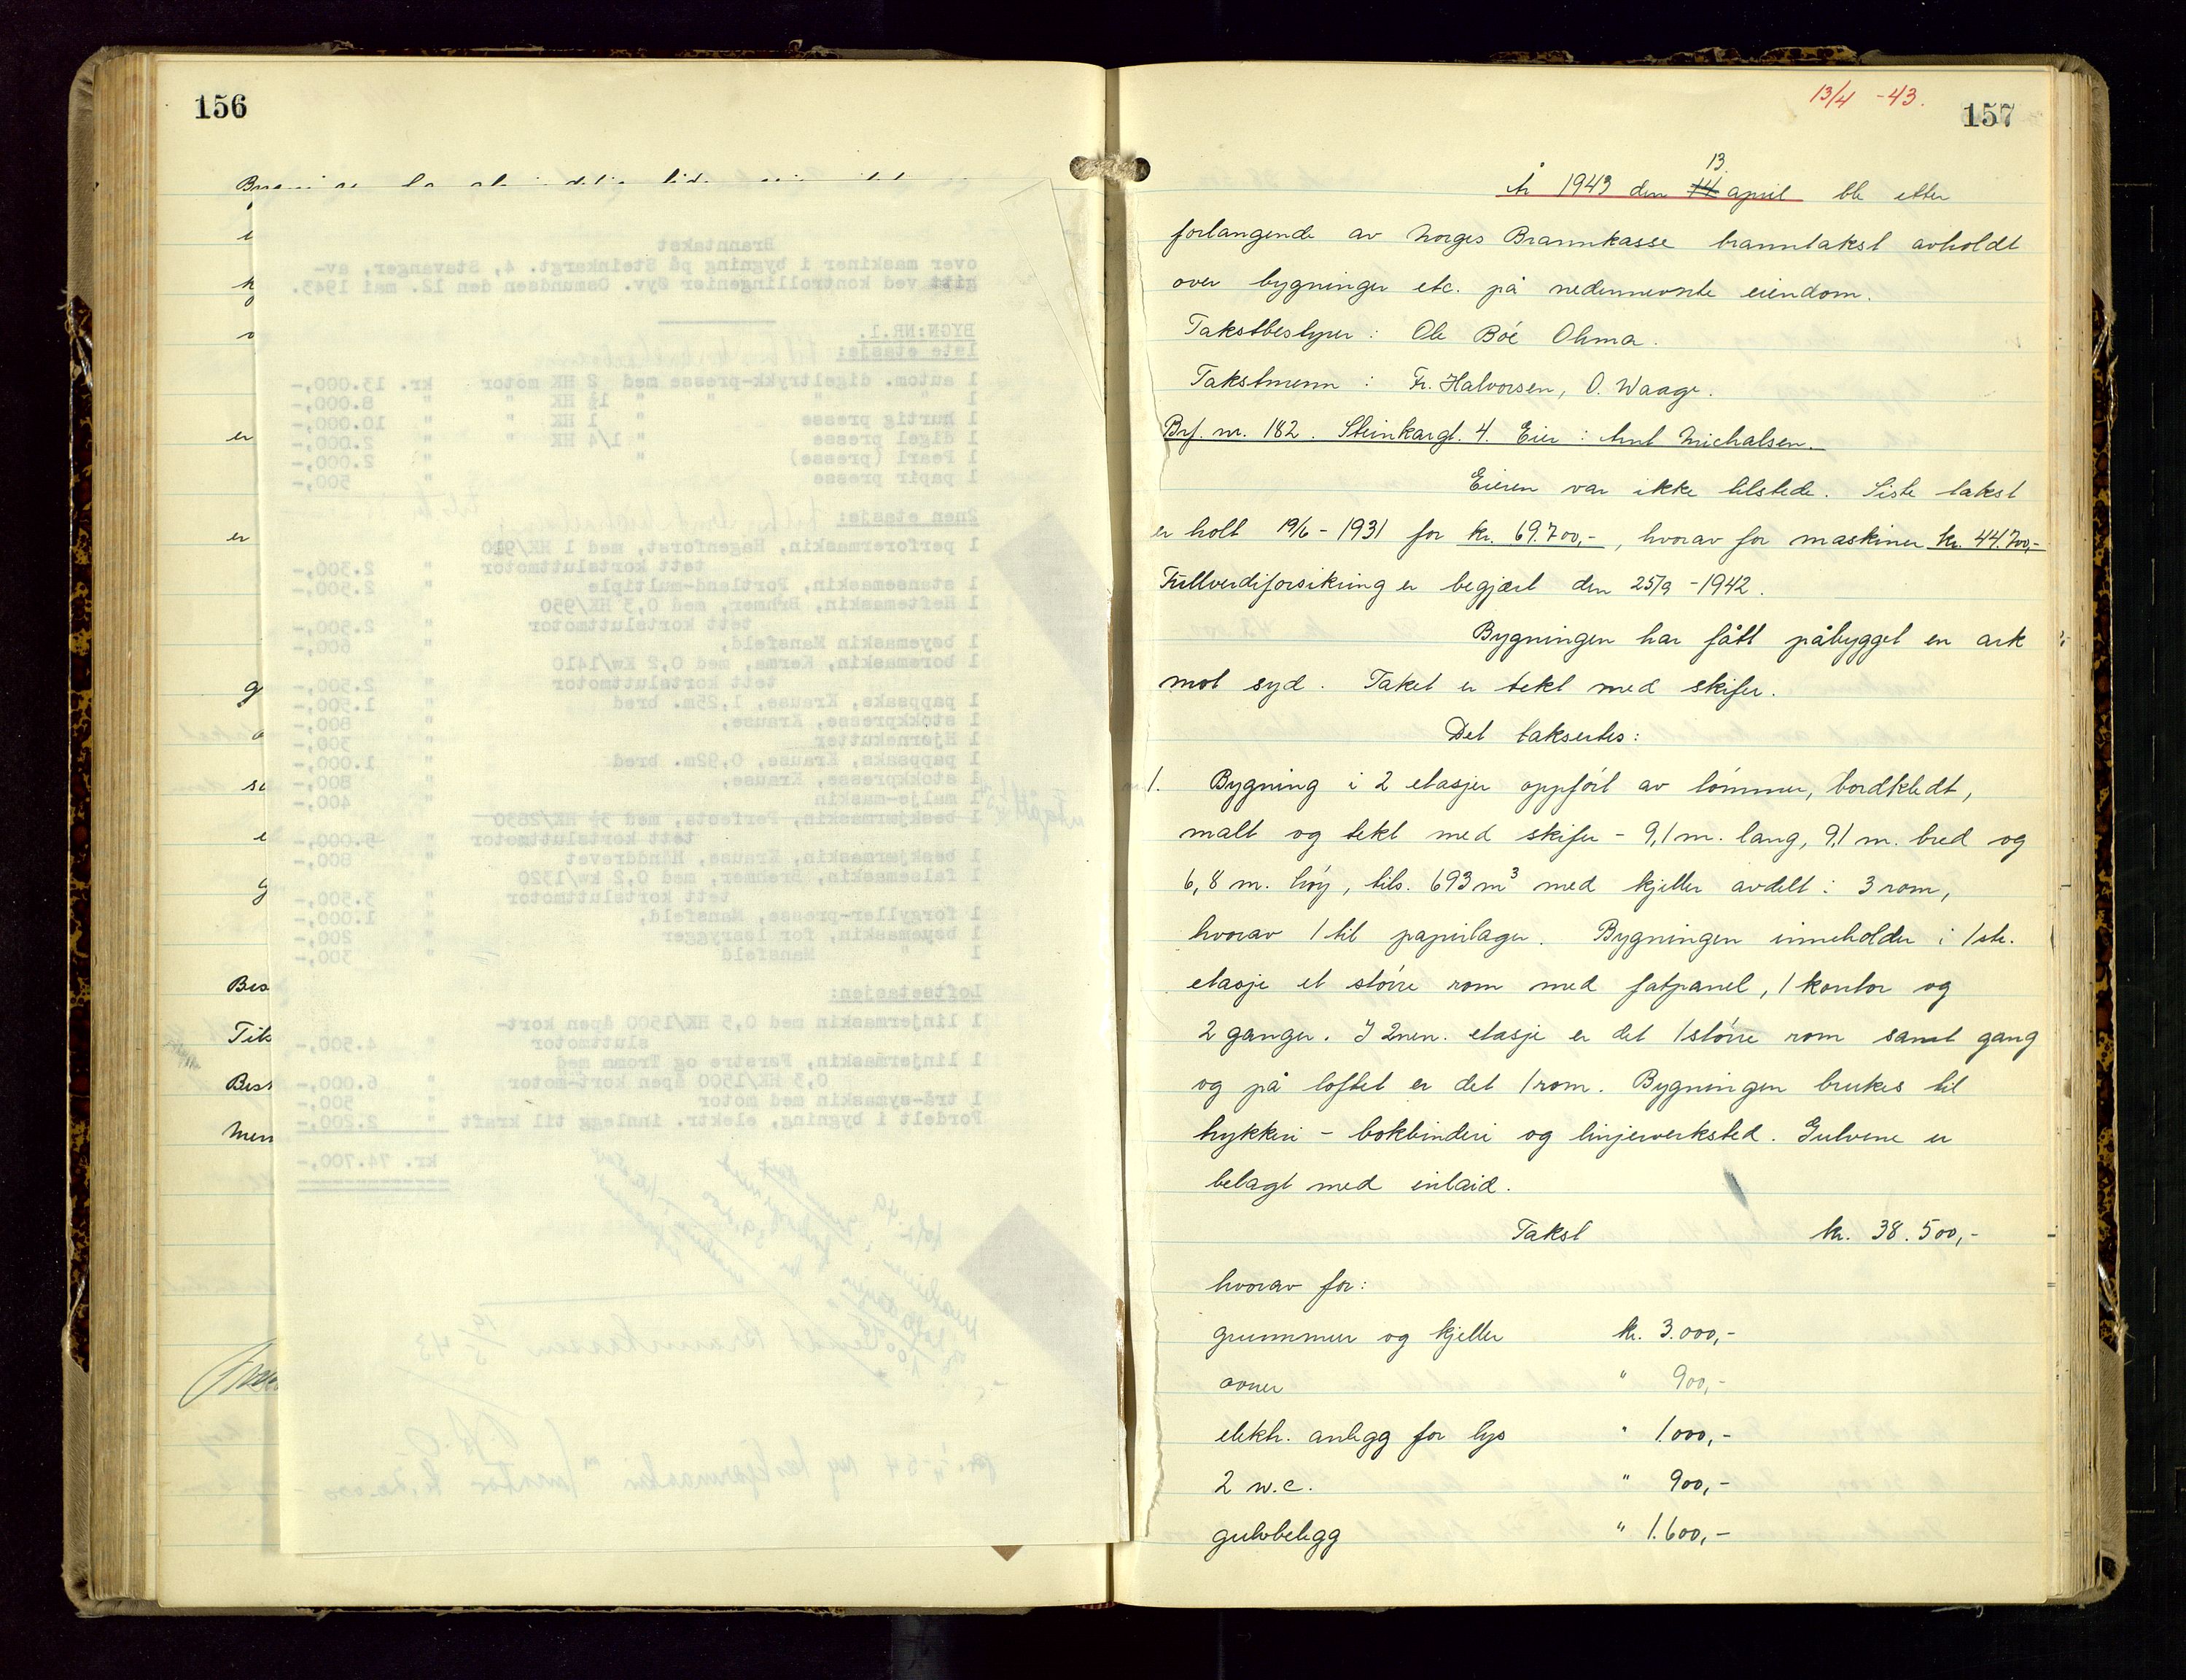 156
Branntakst
over maskiner i bygning på Steinkargt. 4, Stavanger, av-
gitt ved kontrollingeniør Øyv. Osmundsen den 12. mai 1943.
BYGN:NR.1.
1ste etasje:
1 autom. digeltrykk-presse med 2 HK motor kr. 13.000,-
1 " " " " 1½ HK " " 8.000,-
1 hurtig presse " 1 HK " " 10.000,-
1 digel presse " 1/4 HK " " 2.000,-
1 Pearl (presse) " " 2.000,-
1 papir presse " 500,-
2nen etasje:
1 perforermaskin, Hagenforst, med 1 HK/910
tett kortsluttmotor " 2.300,-
1 stansemaskin, Portland-multiple " 2.500,-
1 Heftemaskin, Brehmer, med 0,3 HK/950
tett kortsluttmotor " 2.500,-
1 bøyemaskin Mansfeld, " 600,-
1 boremaskin, Kerma, med 0,2 Kw/1410
tett kortsluttmotor " 2.500,-
1 pappsaks, Krause, 1,25m. bred " 1.500,-
1 stokkpresse, Krause, " 800,-
1 Hjørnekutter " 300,-
1 pappsaks, Krause, 0,92m. bred " 1.000,-
1 stokkpresse, Krause, " 800,-
1 mulje-maskin " 400,-
1 beskjærmaskin, Perfecta, med 3½ HK/2830
tett kortsluttmotor " 5.000,-
1 beskjærmaskin, Krause, Hånddrevet " 800,-
1 falsemaskin, Brehmer, med 0,2 kw/1320
tett kortsluttmotor " 3.500,-
1 forgyller-presse, Mansfeld, " 1.000,-
1 bøyemaskin, for løsrygger " 200,-
1 " Mansfeld " 300,-
Loftsetasjen:
1 linjermaskin med 0,5 HK/1500 åpen kort-
sluttmotor " 4.500,-
1 linjermaskin, Førstre og Tromm med
0,3 HK/1500 åpen kort-motor " 6.000,-
1 trå-symaskin med motor " 500,-
Fordelt i bygning, elektr. innlegg til kraft " 2.200,-
kr. 74.700,-
13/4 -43.
157
År 1943 den 14 13. april ble etter
forlangende av Norges Brannkasse branntakst avholdt
over bygninger etc. på nedennevnte eiendom.
Takstbestyrer: Ole Bøe Ohma.
Takstmenn: Fr. Halvorsen, O. Waage.
Brf. nr. 182. Steinkargt. 4. Eier: Arnt Michalsen.
Eieren var ikke tilstede. Siste takst
er holt 19/6 - 1931 for kr. 69.700,-, hvorav for maskiner kr. 44.700,-
Fullverdiforsikring er begjært den 25/9 - 1942.
Bygningen har fått påbygget en ark
mot syd. Taket er tekt med skifer.
Det taksertes:
1. Bygning i 2 etasjer oppført av tømmer, bordkledt,
malt og tekt med skifer - 9,1 m. lang, 9,1 m. bred og
6,8 m. høy, tils. 693 m³ med kjeller avdelt i 3 rom,
hvorav 1 til papirlager. Bygningen inneholder i 1ste.
etasje et større rom med fatpanel, 1 kontor og
2 ganger. I 2nen. etasje er det 1 større rom samt gang
og på loftet er det 1 rom. Bygningen brukes til
trykkeri - bokbinderi og linjerverksted. Gulvene er
belagt med inlaid.
Takst kr. 38.500,-
hvorav for:
grunnmur og kjeller kr. 3.000,-
ovner " 900,-
elektr. anlegg for lys " 1.000,-
2 w.c. " 900,-
gulvbelegg " 1.600,-